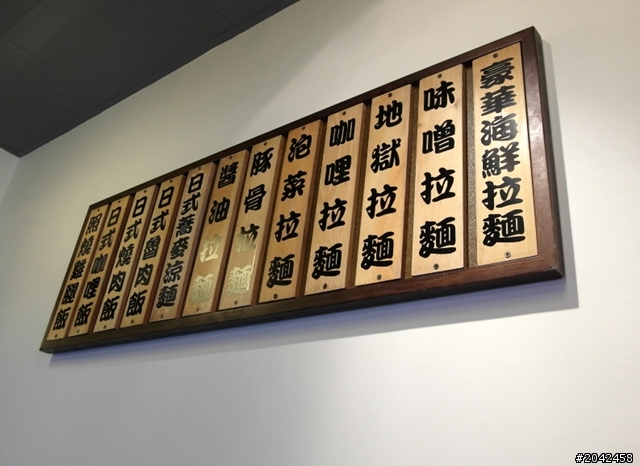 豪華海鮮拉麵
味噌拉麵
地獄拉麵
咖哩拉麵
泡菜拉麵
豚骨拉麵
醬油拉麵
日式蕎麥涼麵
日式魯肉飯
日式燒肉飯
日式咖哩飯
照燒雞腿飯
#2042458